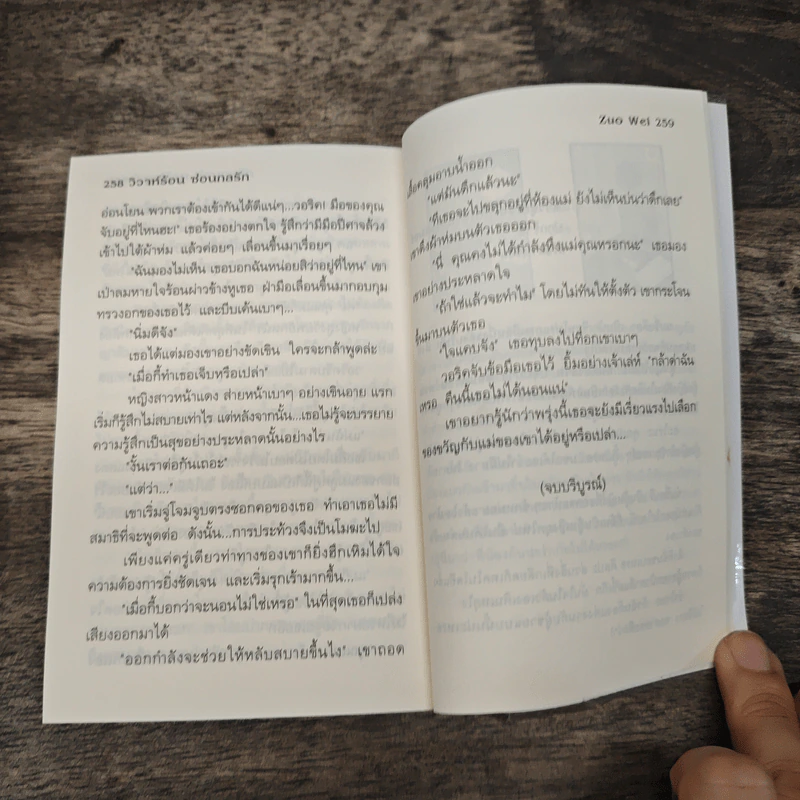 258 วิวาห์ร้อน ซ่อนกลรัก
อ่อนโยน พวกเราต้องเข้ากันได้ดีแน่ๆ...วอริค! มือของคุณ
จับอยู่ที่ไหนฮะ!" เธอร้องอย่างตกใจ รู้สึกว่ามีมือปีศาจล้วง
เข้าไปใต้ผ้าห่ม แล้วค่อยๆ เลื่อนขึ้นมาเรื่อยๆ
"ฉันมองไม่เห็น เธอบอกฉันหน่อยสิว่าอยู่ที่ไหน" เขา
เป่าลมหายใจร้อนผ่าวข้างหูเธอ ฝ่ามือเลื่อนขึ้นมากอบกุม
ทรวงอกของเธอไว้ และบีบเค้นเบาๆ...
"นิ่มดีจัง"
เธอได้แต่มองเขาอย่างขัดเขิน ใครจะกล้าพูดล่ะ
"เมื่อกี้ทำเธอเจ็บหรือเปล่า"
หญิงสาวหน้าแดง ส่ายหน้าเบาๆ อย่างเขินอาย แรก
เริ่มก็รู้สึกไม่สบายเท่าไร แต่หลังจากนั้น...เธอไม่รู้จะบรรยาย
ความรู้สึกเป็นสุขอย่างประหลาดนั้นอย่างไร
"งั้นเราต่อกันเถอะ"
"แต่ว่า..."
เขาเริ่มจู่โจมจูบตรงซอกคอของเธอ ทำเอาเธอไม่มี
สมาธิที่จะพูดต่อ ดังนั้น...การประท้วงจึงเป็นโมฆะไป
เพียงแค่ครู่เดียวท่าทางของเขาก็ยิ่งฮึกเหิมได้ใจ
ความต้องการยิ่งชัดเจน และเริ่มรุกเร้ามากขึ้น...
"เมื่อกี้บอกว่าจะนอนไม่ใช่เหรอ" ในที่สุดเธอก็เปล่ง
เสียงออกมาได้
"ออกกำลังจะช่วยให้หลับสบายขึ้นไง" เขาถอด
Zuo Wei 259
เสื้อคลุมอาบน้ำออก
"แต่มันดึกแล้วนะ"
"ทีเธอจะไปขลุกอยู่ที่ห้องแม่ ยังไม่เห็นบ่นว่าดึกเลย"
เขาดึงผ้าห่มบนตัวเธอออก
"นี่ คุณคงไม่ได้กำลังหึงแม่คุณหรอกนะ" เธอมอง
เขาอย่างประหลาดใจ
"ถ้าใช่แล้วจะทำไม" โดยไม่ทันให้ตั้งตัว เขากระโจน
ขึ้นมาบนตัวเธอ
"ใจแคบจัง" เธอทุบลงไปที่อกเขาเบาๆ
วอริคจับข้อมือเธอไว้ ยิ้มอย่างเจ้าเล่ห์ "กล้าด่าฉัน
เหรอ คืนนี้เธอไม่ได้นอนแน่"
เขาอยากรู้นักว่าพรุ่งนี้เธอจะยังมีเรี่ยวแรงไปเลือก
ของขวัญกับแม่ของเขาได้อยู่หรือเปล่า...
(จบบริบูรณ์)